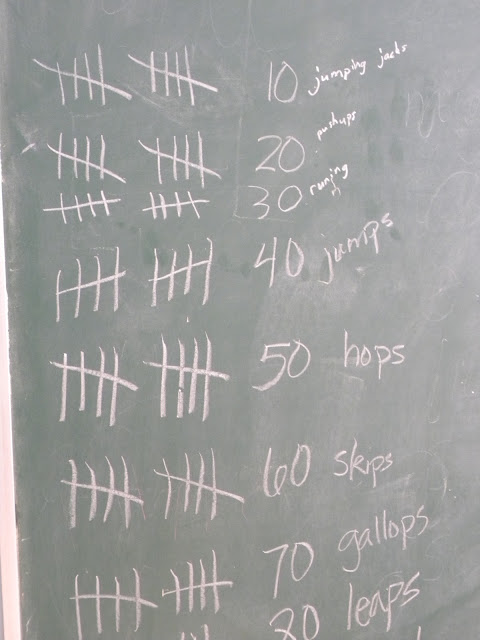 10 jumping jacks
20 pushups
30 runing n
40 jumps
50 hops
60 skips
70 gallops
80 leaps